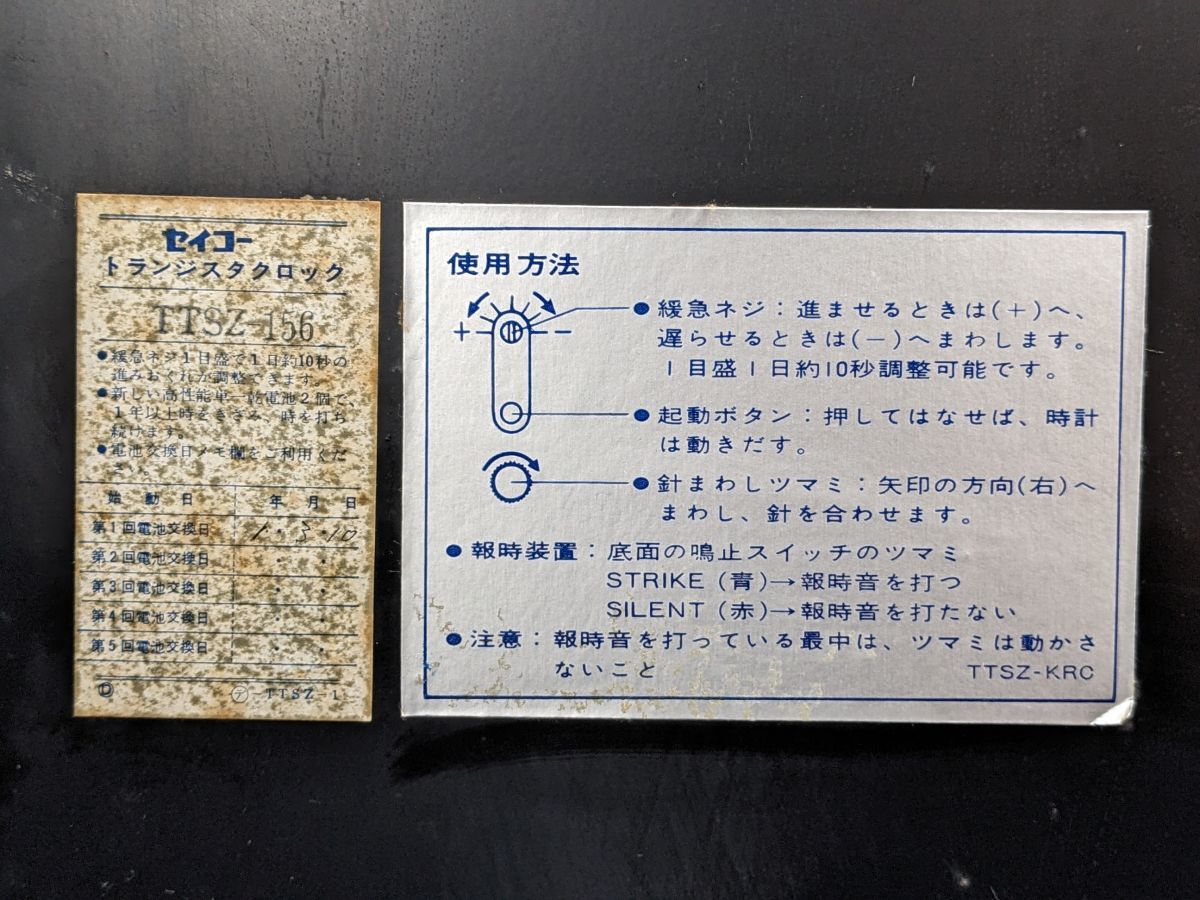 セイコー
トランジスタクロック
TTSZ-156
●緩急ネジ1目盛で1日約10秒の
進みおくれが調整できます。
●新しい高性能単一乾電池2個で、
1年以上時をきざみ、時を打ち
続けます。
●電池交換日メモ欄をご利用くだ
さい。
始動日 年 月 日
第1回電池交換日 1・3・10
第2回電池交換日 ・ ・
第3回電池交換日 ・ ・
第4回電池交換日 ・ ・
第5回電池交換日 ・ ・
Ⓓ ㋢-TTSZ-1
使用方法
+ −
●緩急ネジ：進ませるときは(+)へ、
遅らせるときは(−)へまわします。
1目盛1日約10秒調整可能です。
●起動ボタン：押してはなせば、時計
は動きだす。
●針まわしツマミ：矢印の方向(右)へ
まわし、針を合わせます。
●報時装置：底面の鳴止スイッチのツマミ
STRIKE（青）→報時音を打つ
SILENT（赤）→報時音を打たない
●注意：報時音を打っている最中は、ツマミは動かさ
ないこと TTSZ-KRC